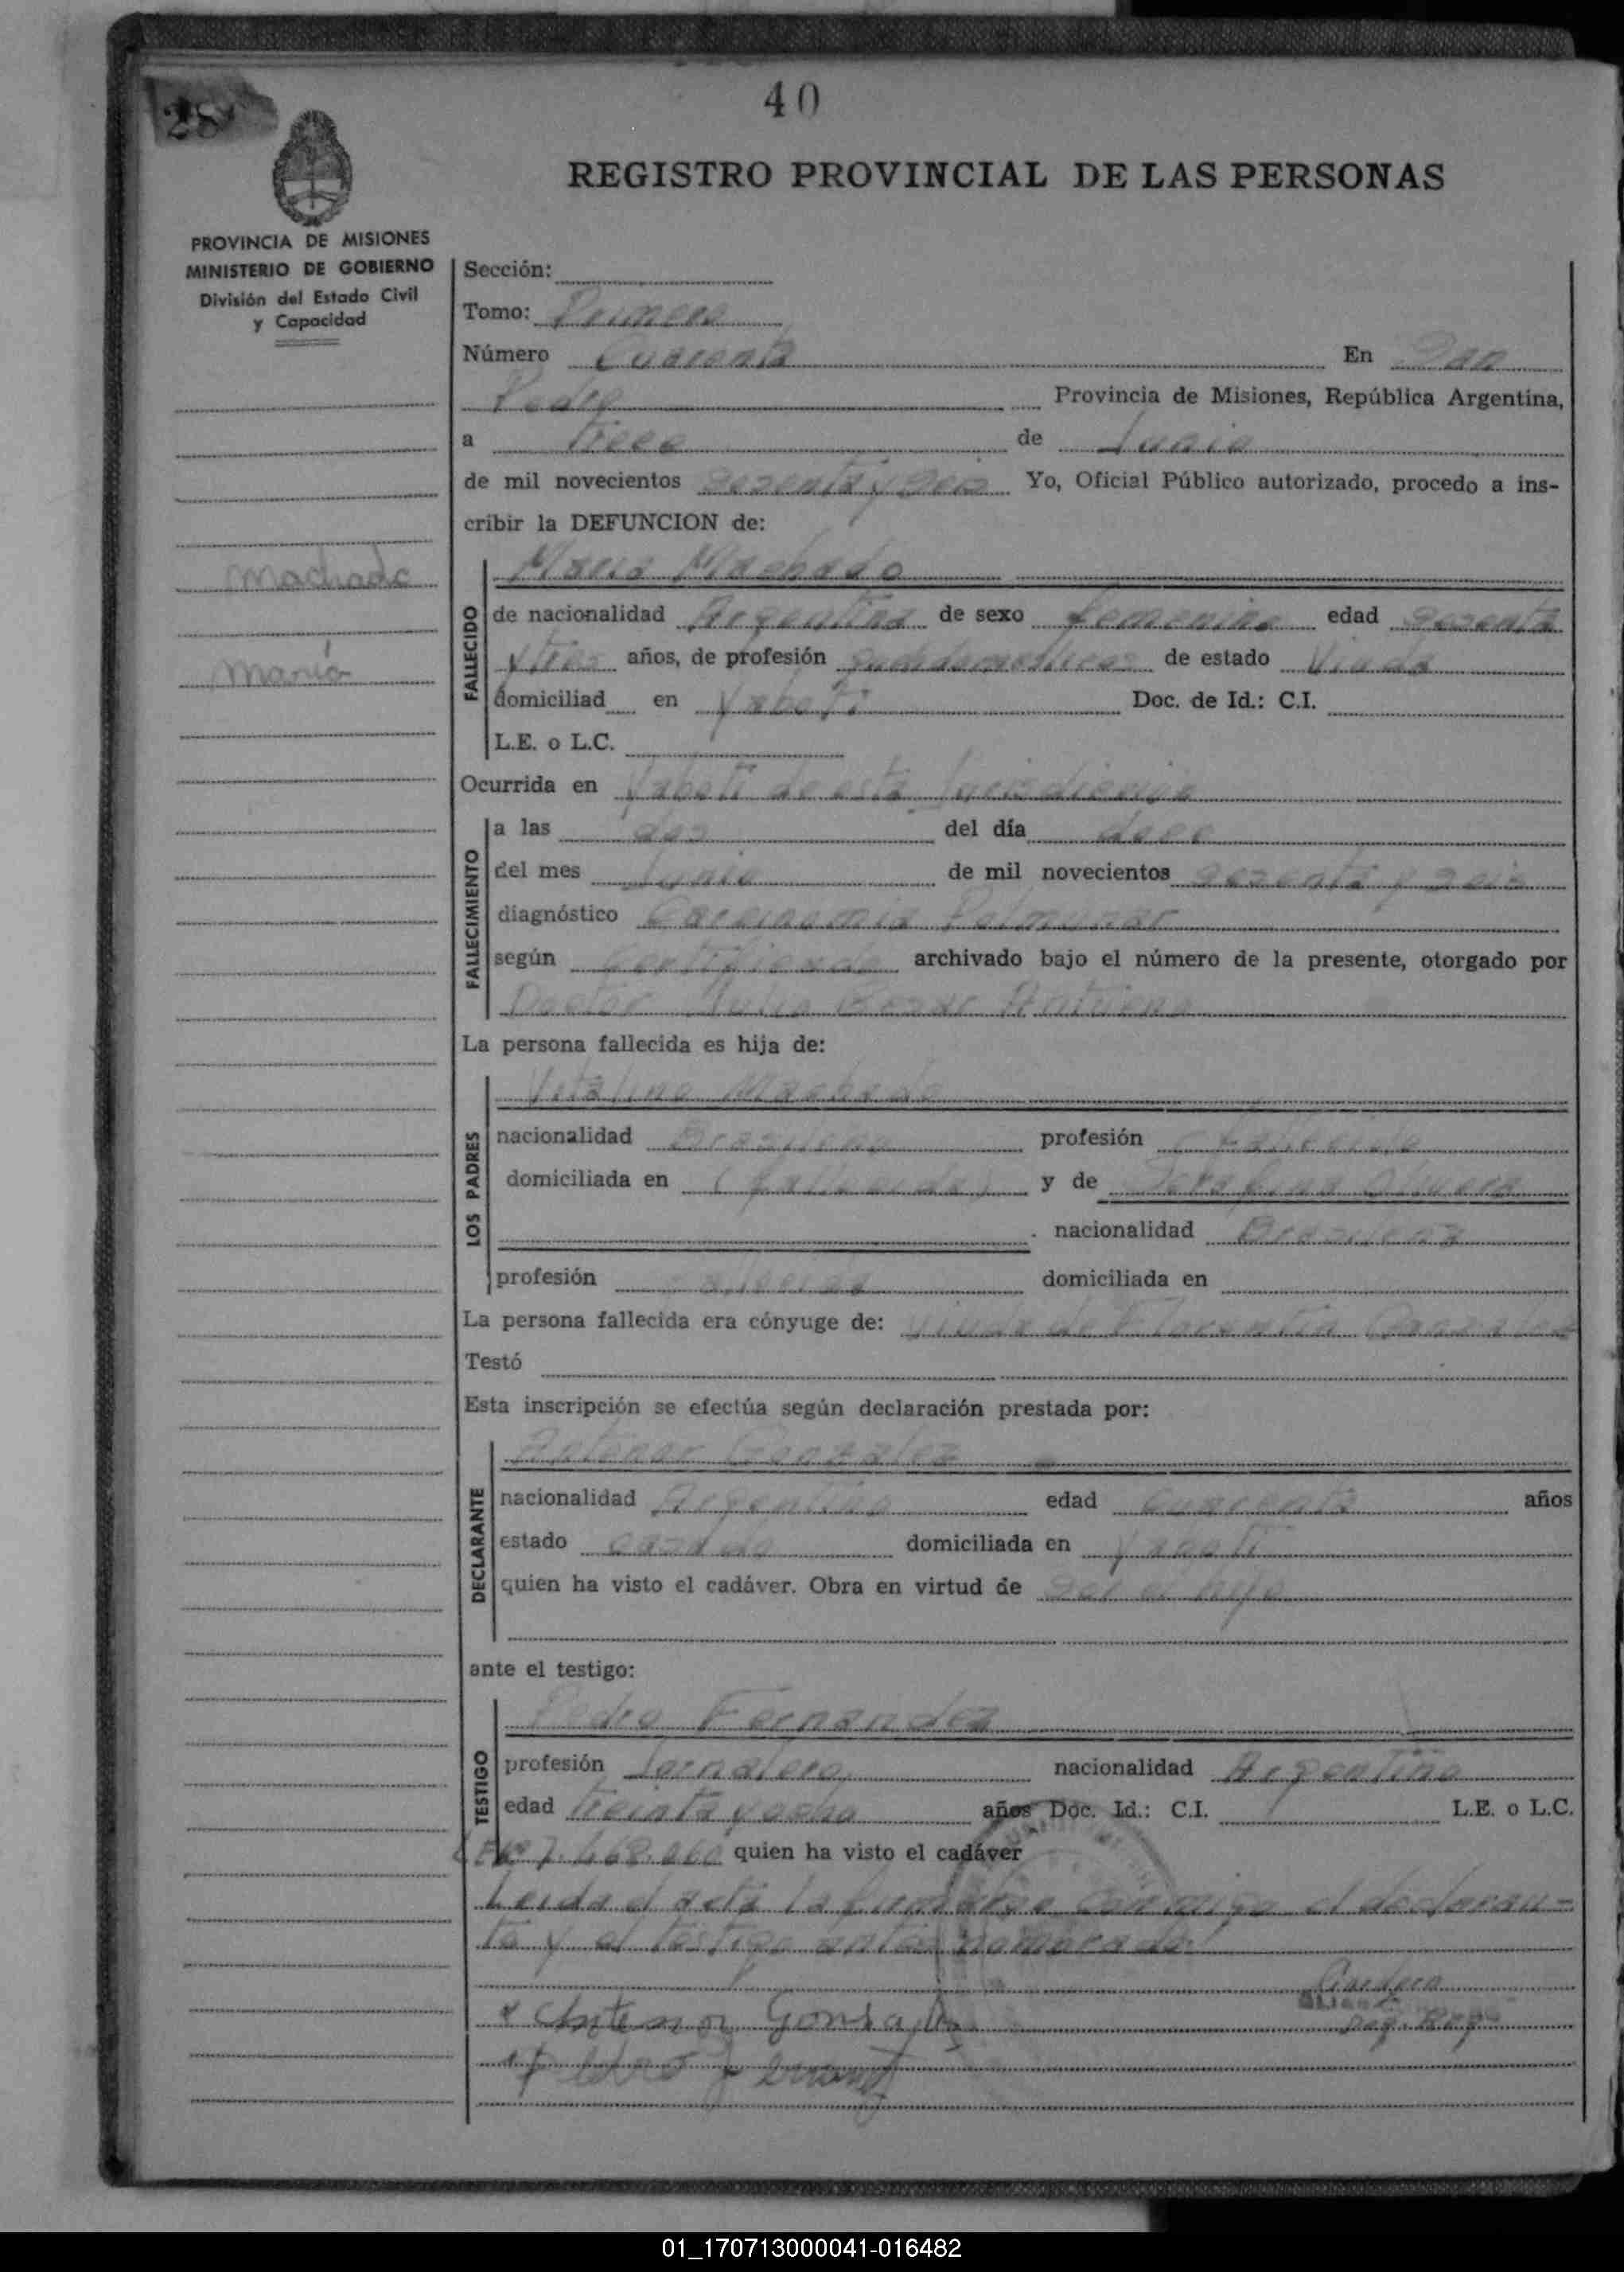 40
28
REGISTRO PROVINCIAL DE LAS PERSONAS
PROVINCIA DE MISIONES
MINISTERIO DE GOBIERNO
División del Estado Civil
y Capacidad
Machado
María
Sección:
Tomo: Primero
Número Cuarenta En San
Pedro Provincia de Misiones, República Argentina,
a trece de Junio
de mil novecientos sesenta y seis Yo, Oficial Público autorizado, procedo a ins-
cribir la DEFUNCION de:
FALLECIDO
Maria Machado
de nacionalidad Argentina de sexo femenino edad sesenta
y tres años, de profesión de estado Viuda
domiciliad en Yaboti Doc. de Id.: C.I.
L.E. o L.C.
Ocurrida en Yaboti de esta Jurisdiccion
FALLECIMIENTO
a las dos del día doce
del mes Junio de mil novecientos sesenta y seis
diagnóstico Carcinomia Pulmonar
según Certificado archivado bajo el número de la presente, otorgado por
Doctor Julio Cesar
La persona fallecida es hija de:
LOS PADRES
Vitalino Machado
nacionalidad Brasilena profesión
domiciliada en (fallecido) y de Serafina Olivera
nacionalidad Brasilena
profesión fallecida domiciliada en
La persona fallecida era cónyuge de: Viuda de Florentin Gonzalez
Testó
Esta inscripción se efectúa según declaración prestada por:
DECLARANTE
Antenor Gonzalez
nacionalidad Argentina edad Cuarenta años
estado casado domiciliada en Yaboti
quien ha visto el cadáver. Obra en virtud de ser su hijo
ante el testigo:
TESTIGO
Pedro Fernandez
profesión Jornalero nacionalidad Argentina
edad treinta y ocho años Doc. Id.: C.I. L.E. o L.C.
quien ha visto el cadáver
Leida el acta la firman conmigo el declaran-
te y el testigo antes nombrado
Antenor Gonsalez
Pedro
01_170713000041-016482